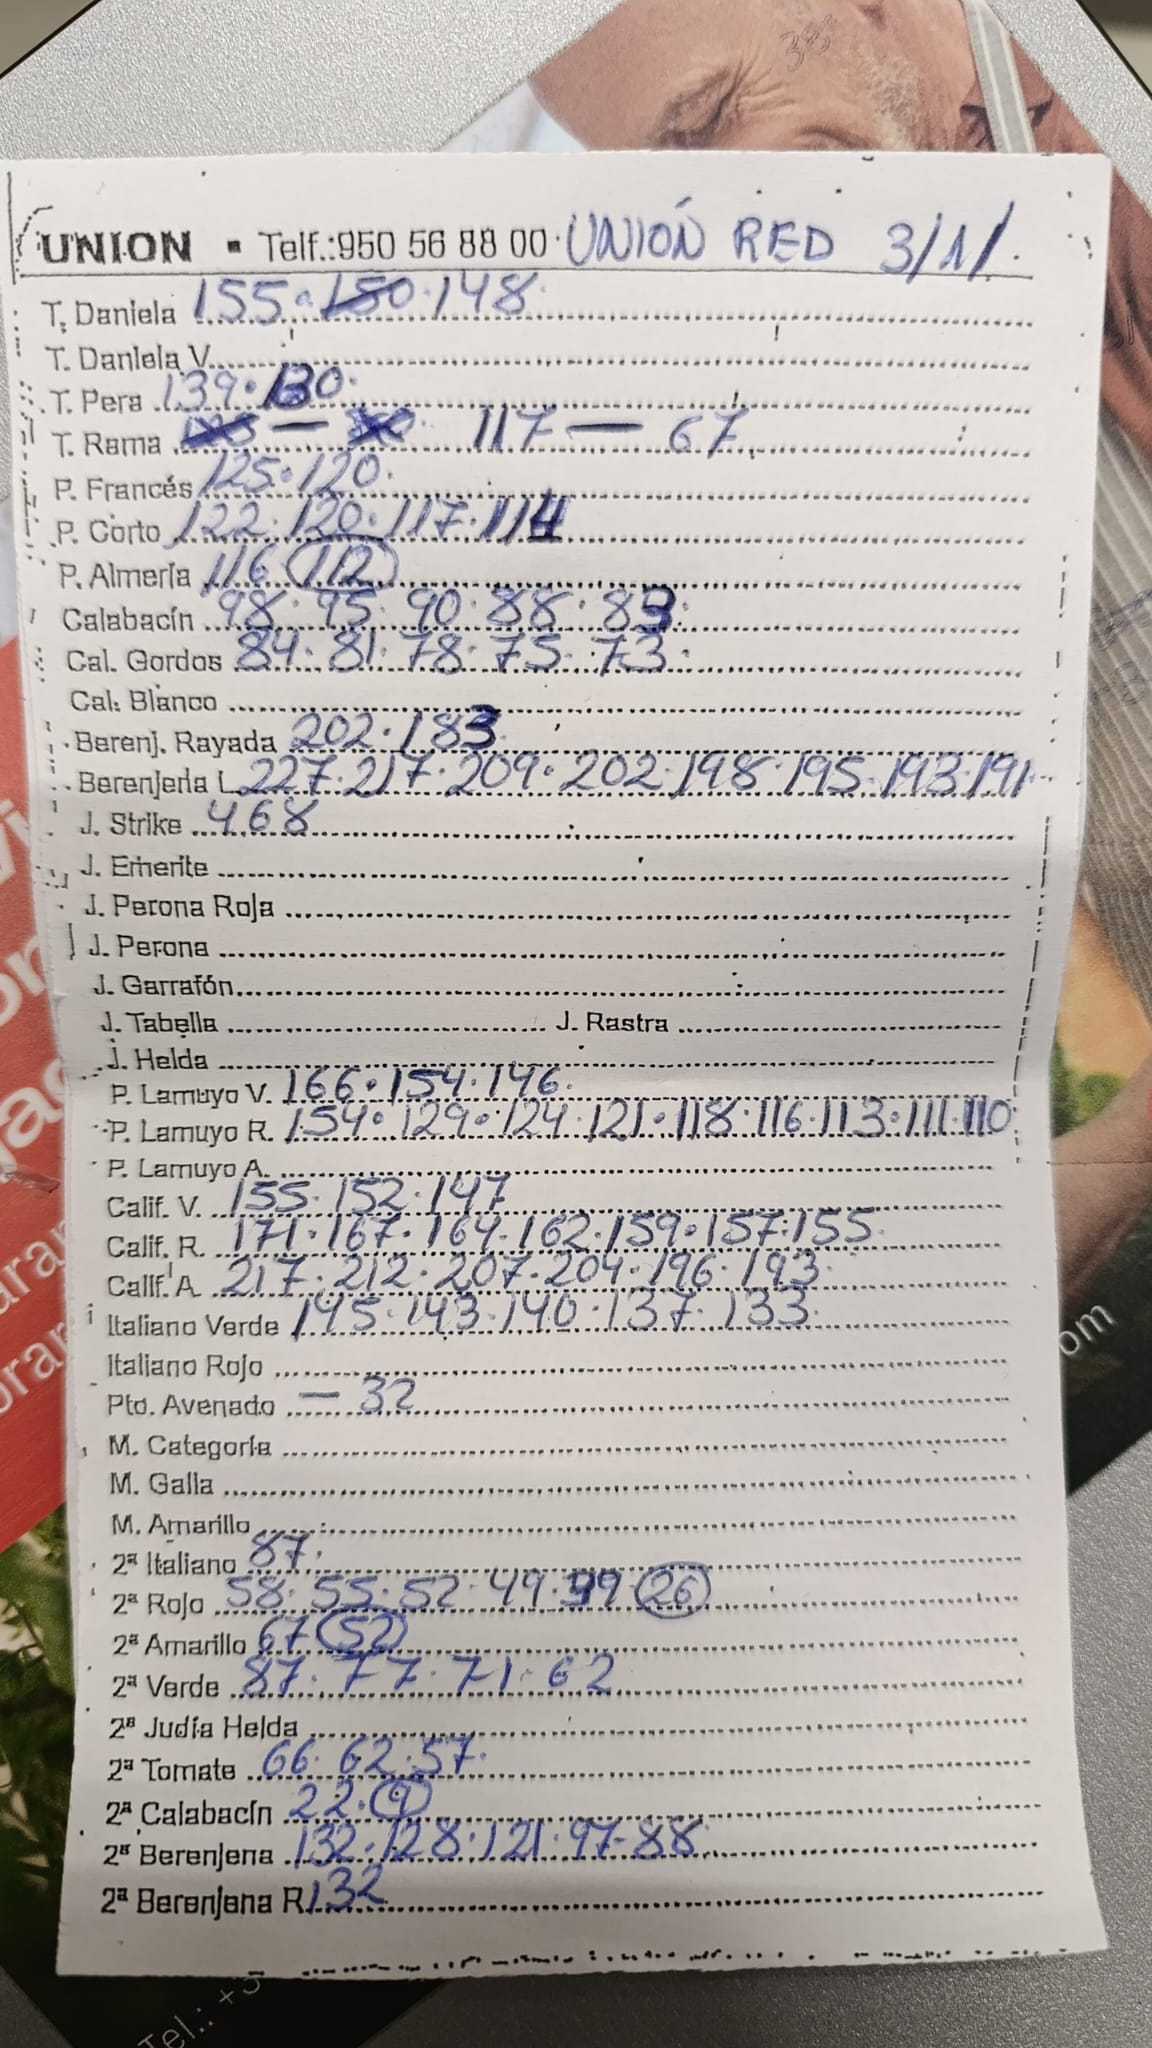 UNION ▪ Telf.:950 56 88 00 · UNIÓN RED 3/11/.
T. Daniela 155 · 150 · 148
T. Daniela V.
T. Pera 139 · 130.
T. Rama — 117 — 67
P. Francés 125 · 120.
P. Corto 122 · 120 · 117 · 114
P. Almería 116 112
Calabacín 98 · 95 · 90 · 88 · 83
Cal. Gordos 84 · 81 · 78 · 75 · 73
Cal. Blanco
Berenj. Rayada 202 · 183
Berenjena L 227 · 217 · 209 · 202 · 198 · 195 · 193 · 191
J. Strike 468
J. Emerite
J. Perona Roja
J. Perona
J. Garrafón
J. Tabella J. Rastra
J. Helda
P. Lamuyo V. 166 · 154 · 146.
P. Lamuyo R. 154 · 129 · 124 · 121 · 118 · 116 · 113 · 111 · 110
P. Lamuyo A.
Calif. V. 155 · 152 · 147
Calif. R. 171 · 167 · 164 · 162 · 159 · 157 · 155
Calif. A 217 · 212 · 207 · 204 · 196 · 193
Italiano Verde 145 · 143 · 140 · 137 · 133
Italiano Rojo
Pto. Avenado — 32
M. Categoría
M. Galia
M. Amarillo
2ª Italiano 87.
2ª Rojo 58 · 55 · 52 · 49 · 39 26
2ª Amarillo 67 52
2ª Verde 87 · 77 · 71 · 62
2ª Judía Helda
2ª Tomate 66 · 62 · 57.
2ª Calabacín 22 · 9
2ª Berenjena 132 · 128 · 121 · 97 · 88
2ª Berenjena R. 132
om
Tel.: +3